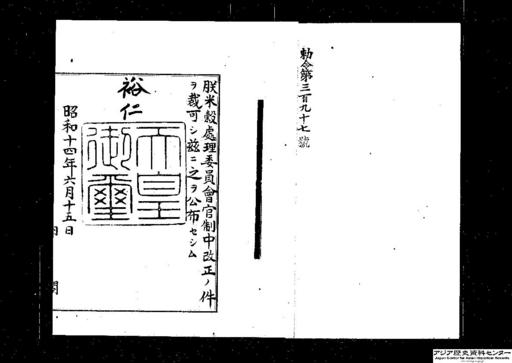 勅令第三百九十七號
朕米穀處理委員會官制中改正ノ件
ヲ裁可シ玆ニ之ヲ公布セシム
裕仁
天皇御璽
昭和十四年六月十五日
アジア歴史資料センター
Japan Center for Asian Historical Records